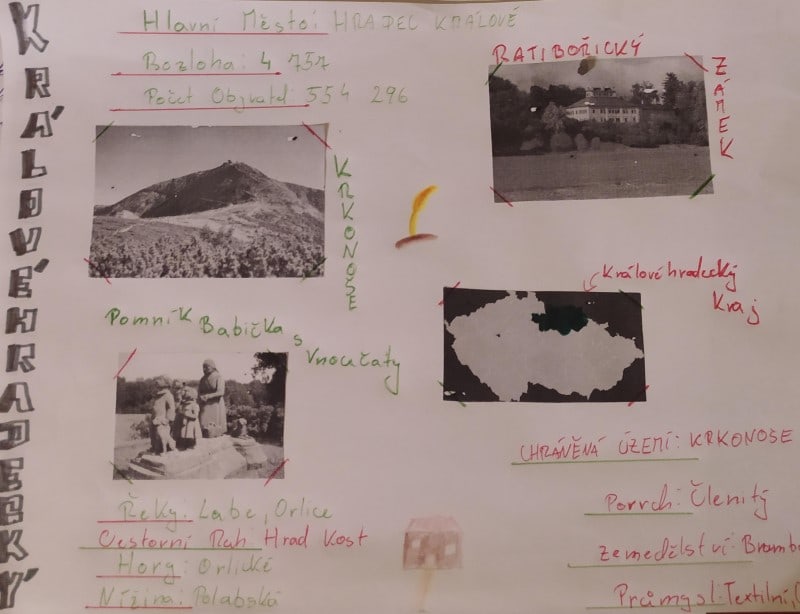 KRÁLOVÉHRADECKÝ
Hlavní Město: HRADEC KRÁLOVÉ
Rozloha: 4 757
Počet Obyvatel 554 296
RATIBOŘICKÝ
ZÁMEK
KRKONOŠE
Královéhradecký
Kraj
Pomník Babička s Vnoučaty
CHRÁNĚNÁ ÚZEMÍ: KRKONOŠE
Řeky: Labe, Orlice
Cestovní Ruh Hrad Kost
Hory: Orlické
Nížina: Polabská
Povrch: Členitý
Zemědělství: Brambo
Průmysl: Textilní,